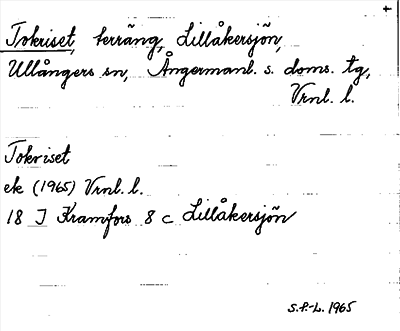 Tokriset, terräng, Lillåkersjön,
Ullångers sn, Ångermanl. s. doms. tg,
Vrnl. l.
Tokriset
ek (1965) Vrnl. l.
18 J Kramfors 8 c Lillåkersjön
S.P.-L. 1965